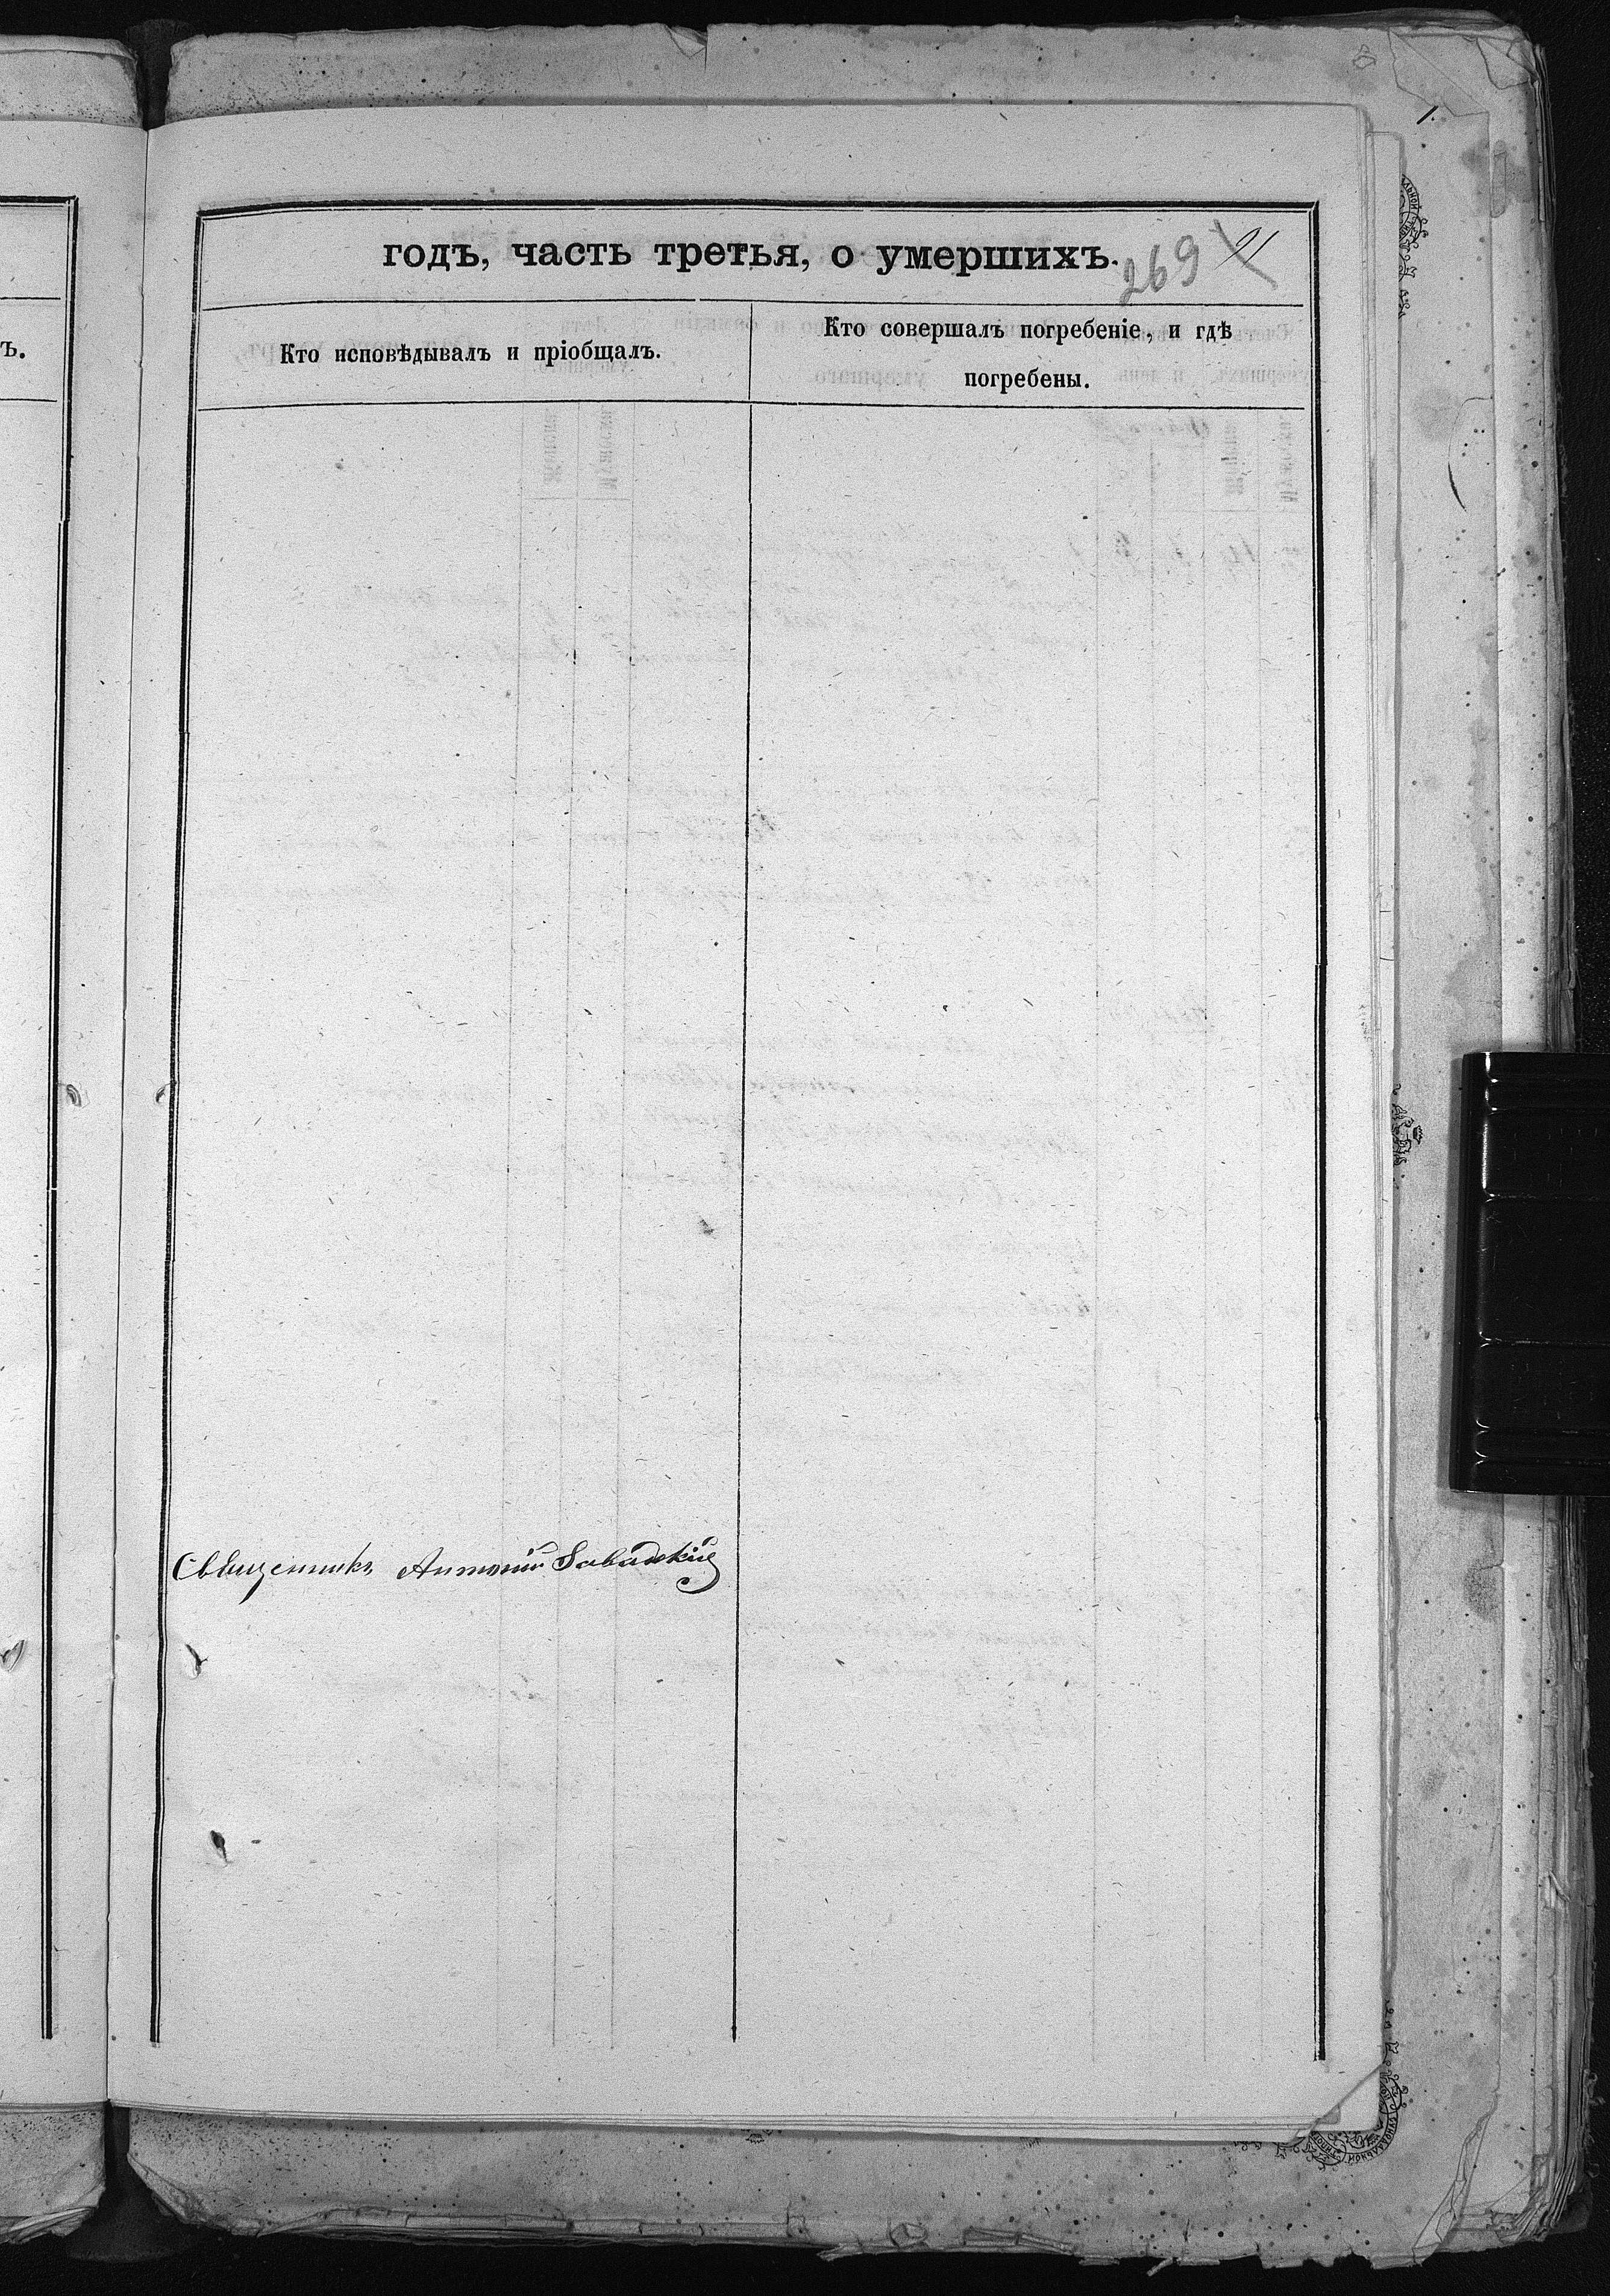 годъ, часть третья, о умершихъ.
269 21
Кто исповѣдывалъ и пріобщалъ.
Кто совершалъ погребеніе, и гдѣ
погребены.
Священникъ Антоній Завадскій
ъ.
1.